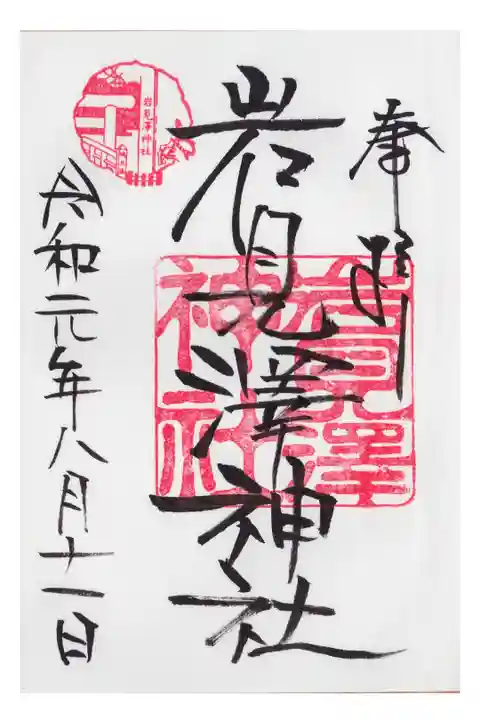 奉拝
岩見澤神社
岩見澤
神社
岩見澤神社
令和元年八月十一日